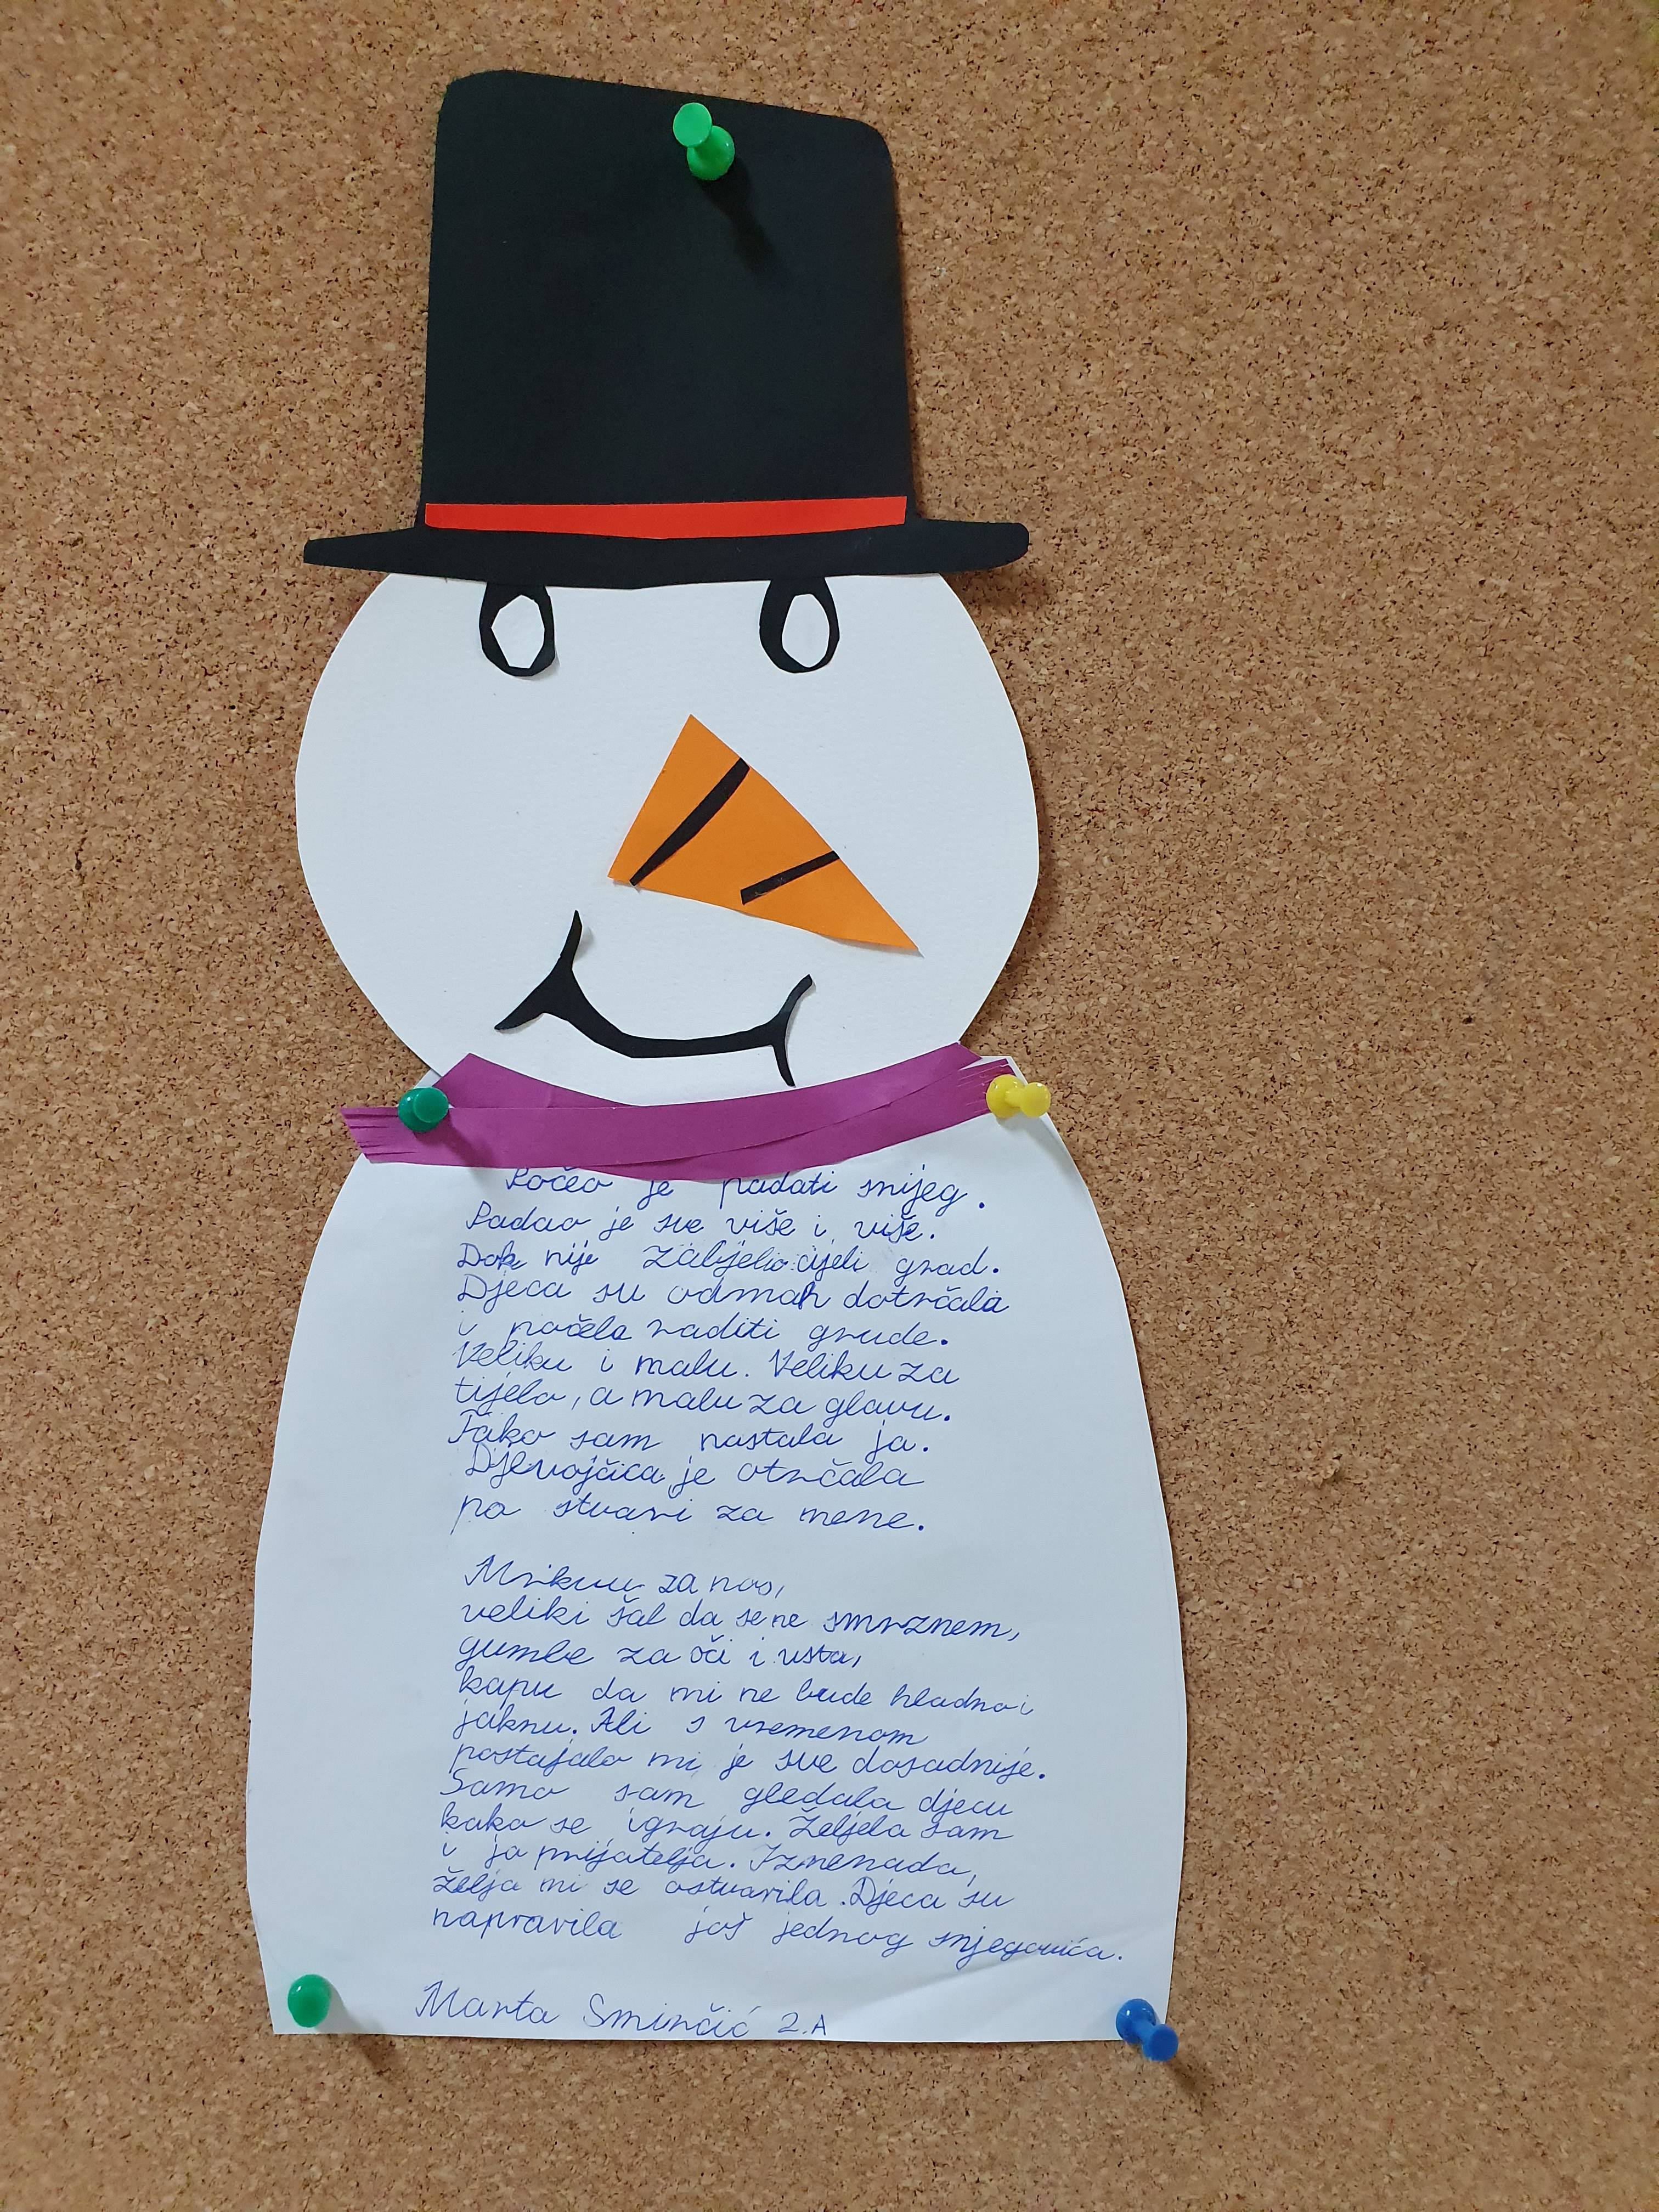 Počeo je padati snijeg.
Padao je sve više i više.
Dok nije zabjelio cijeli grad.
Djeca su odmah dotrčala
i počela raditi grude.
Veliku i malu. Veliku za
tijelo, a malu za glavu.
Tako sam nastala ja.
Djevojčica je otrčala
po stvari za mene.
Mrkvu za nos,
veliki šal da se ne smrznem,
gumbe za oči i usta,
kapu da mi ne bude hladno i
jaknu. Ali s vremenom
postajalo mi je sve dosadnije.
Samo sam gledala djecu
kako se igraju. Željela sam
i ja prijatelja. Iznenada,
želja mi se ostvarila. Djeca su
napravila još jednog snjegovića.
Marta Sminčić 2.A